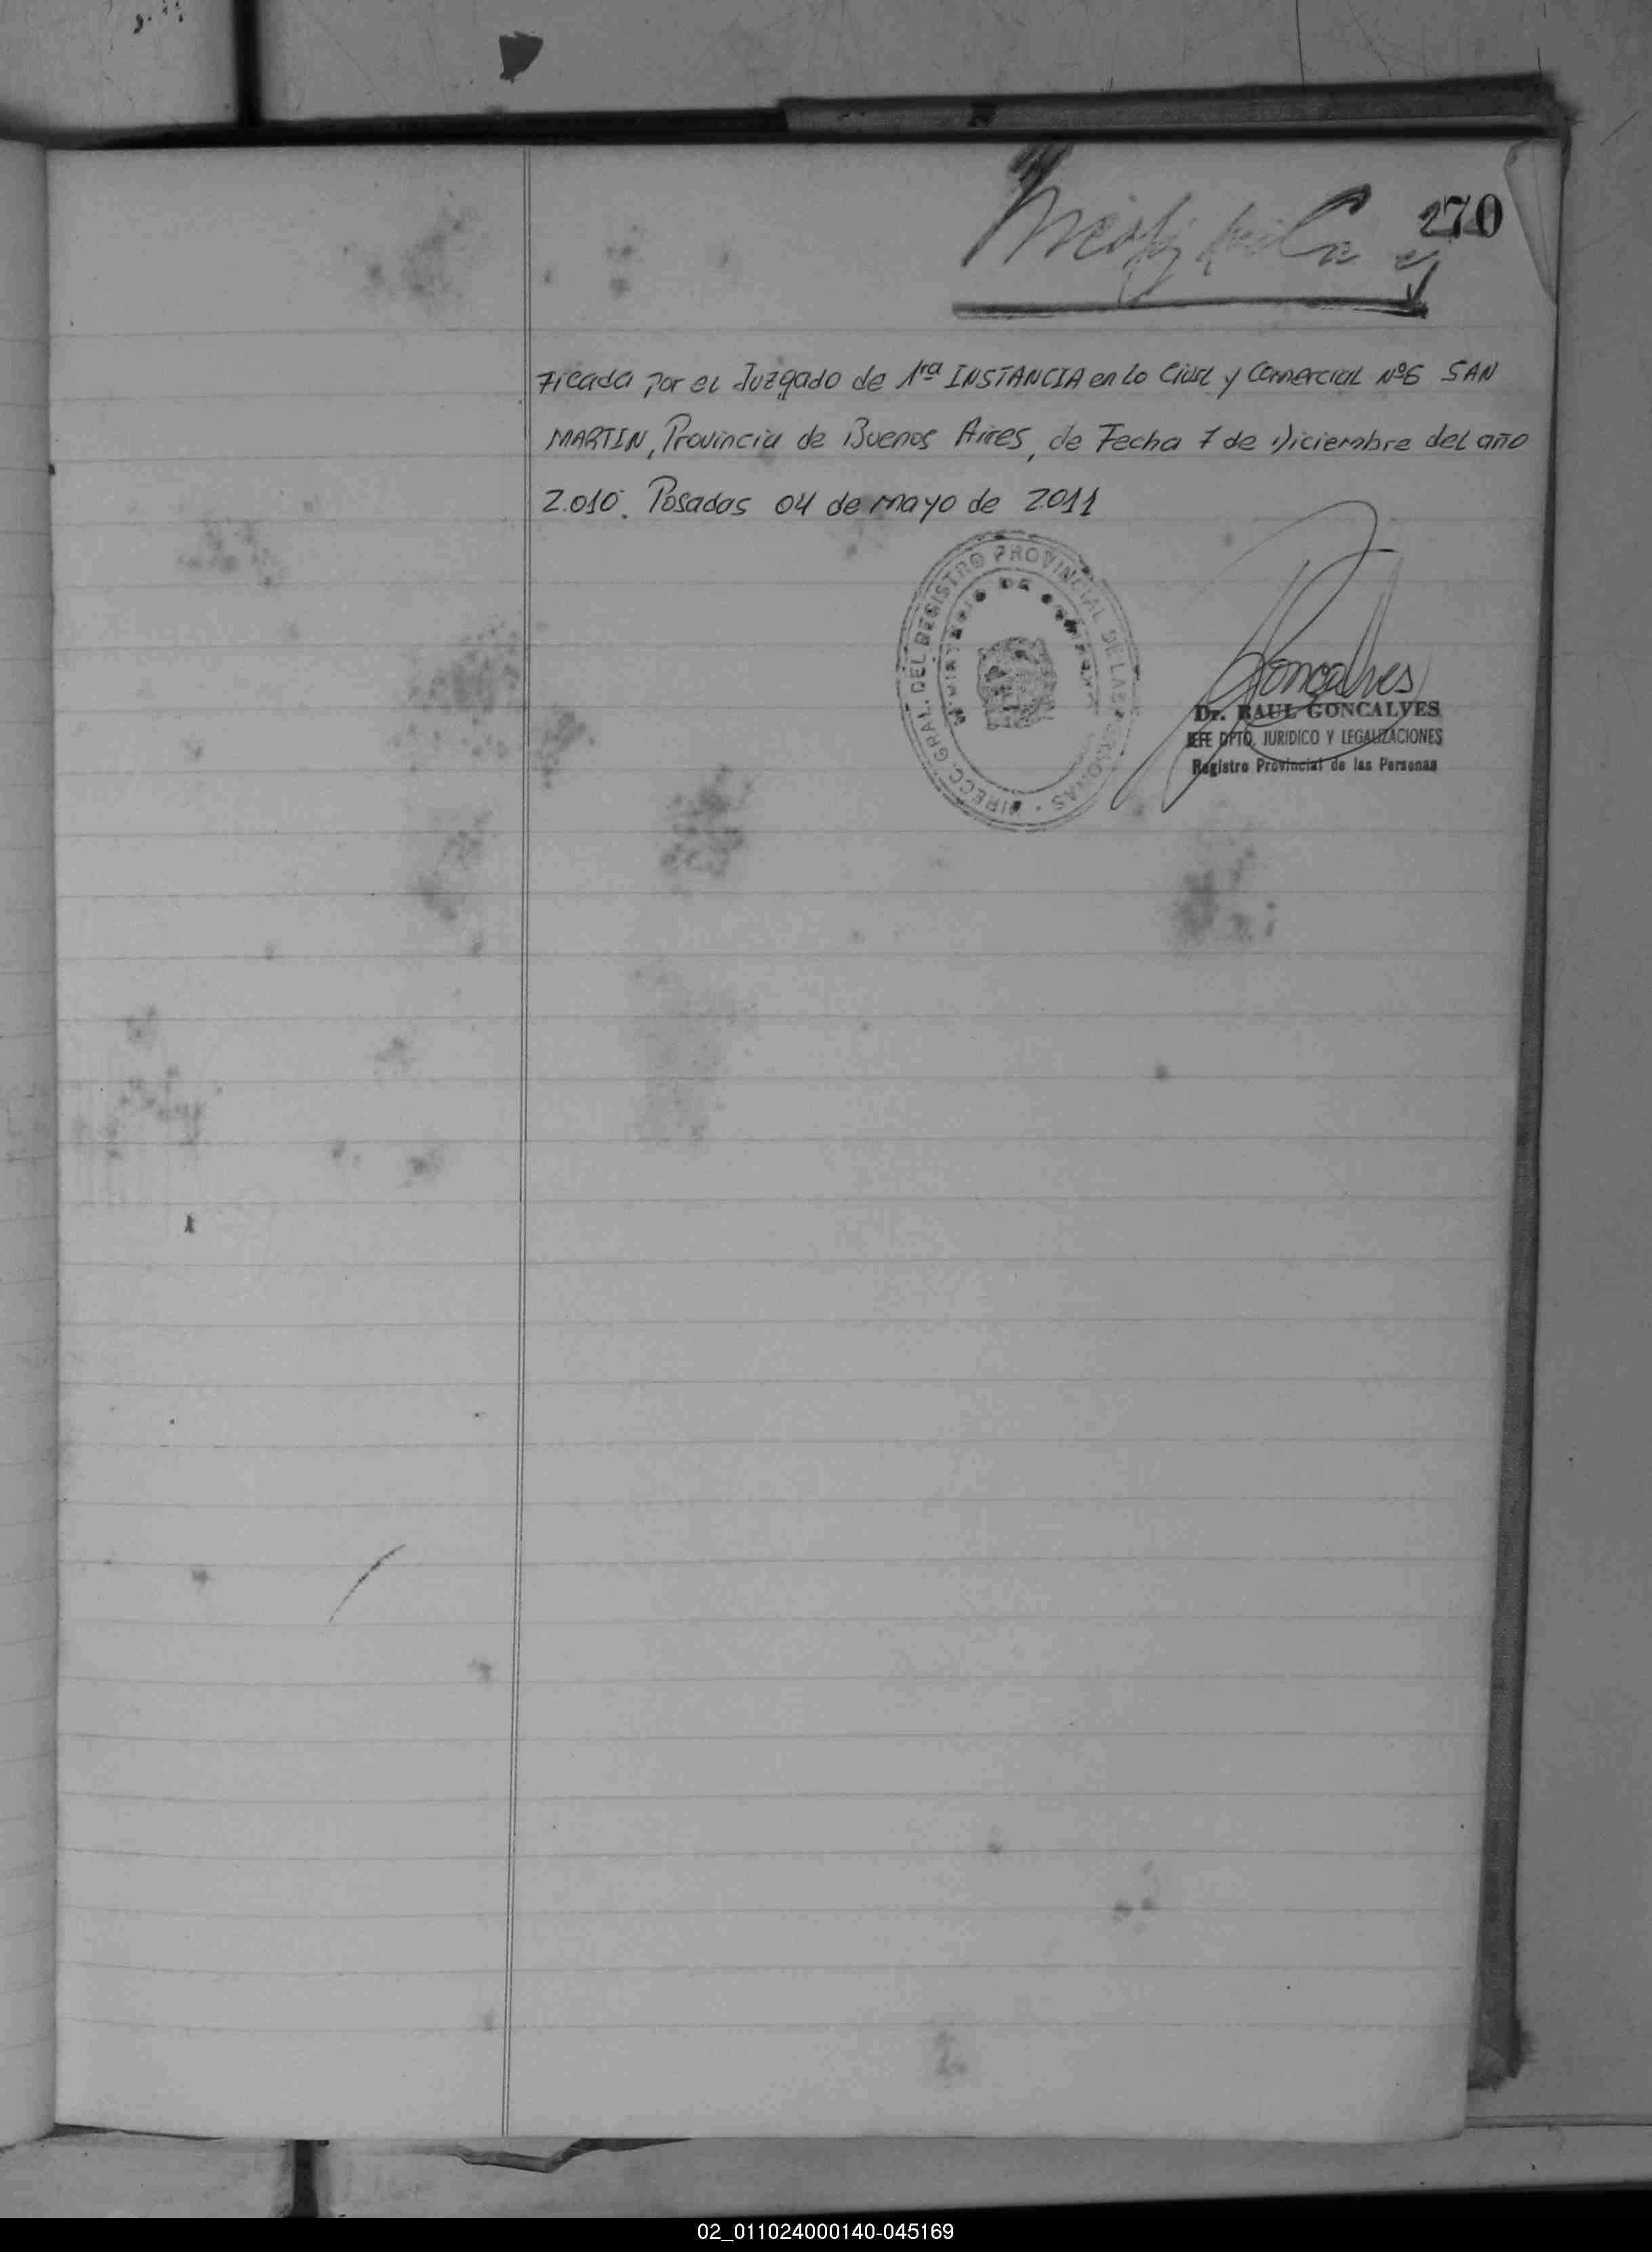 270
Ficada por el Juzgado de 1ra INSTANCIA en Lo Civil y Comercial Nº6 SAN
MARTIN, Provincia de Buenos Aires, de Fecha 7 de Diciembre del año
2.010. Posadas 04 de mayo de 2011
DIRECC. GRAL. DEL REGISTRO PROVINCIAL DE LAS PERSONAS
MINISTERIO DE
Goncalves
Dr. RAUL GONCALVES
JEFE DPTO. JURIDICO Y LEGALIZACIONES
Registro Provincial de las Personas
02_011024000140-045169